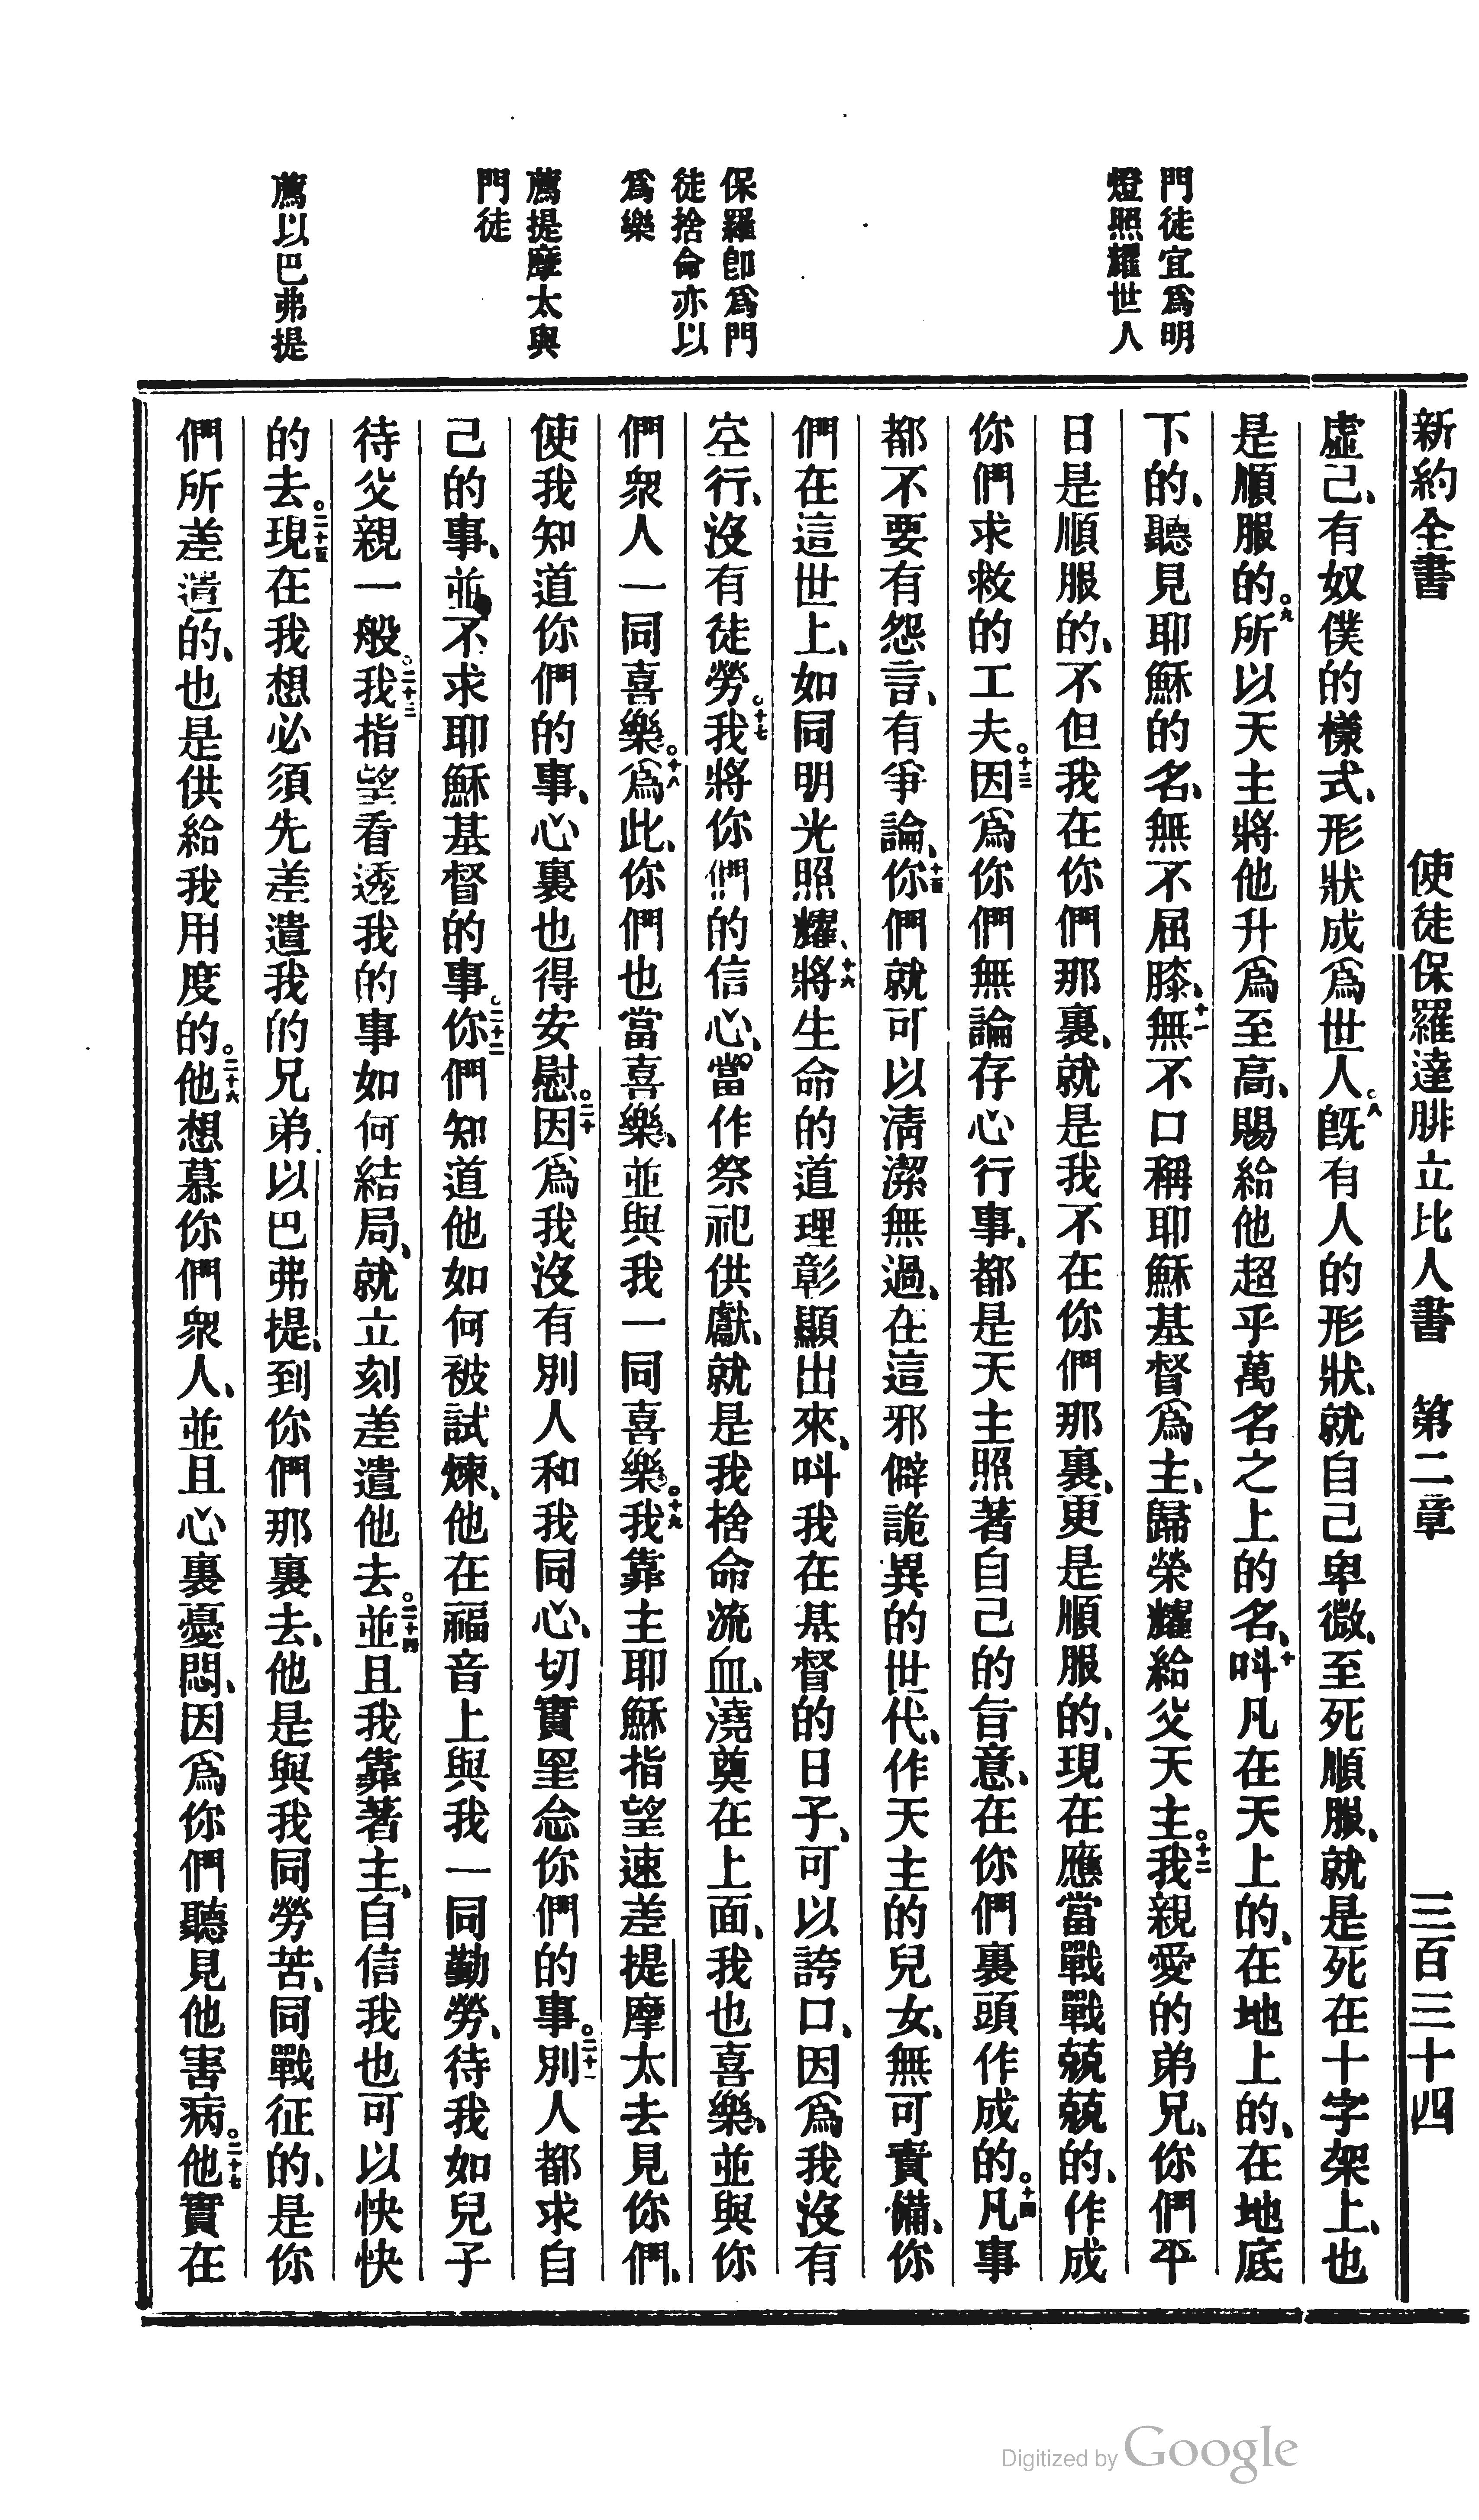 新約全書 使徒保羅達腓立比人書 第二章 三百三十四
門徒宜爲明
燈照耀世人
保羅卽爲門
徒捨命亦以
爲樂
薦提摩太與
門徒
薦以巴弗提
虛己、有奴僕的樣式、形狀成爲世人○八旣有人的形狀、就自己卑微、至死順服、就是死在十字架上、也
是順服的○九所以天主將他升爲至高、賜給他超乎萬名之上的名、十呌凡在天上的、在地上的、在地底
下的、聽見耶穌的名、無不屈膝、十一無不口稱耶穌基督爲主、歸榮耀給父天主○十二我親愛的弟兄、你們平
日是順服的、不但我在你們那裏、就是我不在你們那裏、更是順服的、現在應當戰戰兢兢的、作成
你們求救的工夫○十三因爲你們無論存心行事、都是天主照著自己的旨意、在你們裏頭作成的○十四凡事
都不要有怨言、有爭論、十五你們就可以淸潔無過、在這邪僻詭異的世代、作天主的兒女、無可責備、你
們在這世上、如同明光照耀、十六將生命的道理彰顯出來、呌我在基督的日子、可以誇口、因爲我沒有
空行、沒有徒勞○十七我將你們的信心、當作祭祀供獻、就是我捨命流血、澆奠在上面、我也喜樂、並與你
們衆人一同喜樂○十八爲此、你們也當喜樂、並與我一同喜樂○十九我靠主耶穌指望速差提摩太去見你們、
使我知道你們的事、心裏也得安慰○二十因爲我沒有別人和我同心、切實罣念你們的事○二十一別人都求自
己的事、並不求耶穌基督的事○二十二你們知道他如何被試煉、他在福音上與我一同勤勞、待我如兒子
待父親一般○二十三我指望看透我的事如何結局、就立刻差遣他去○二十四並且我靠著主、自信我也可以快快
的去○二十五現在我想必須先差遣我的兄弟以巴弗提、到你們那裏去、他是與我同勞苦、同戰征的、是你
們所差遣的、也是供給我用度的○二十六他想慕你們衆人、並且心裏憂悶、因爲你們聽見他害病○二十七他實在
Digitized by Google